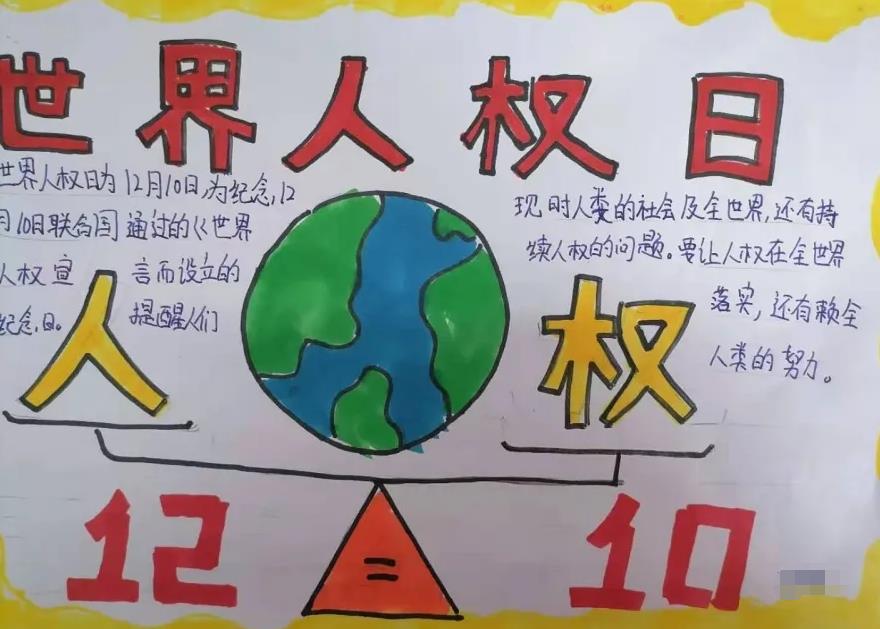 世界人权日
世界人权日为12月10日,为纪念,12
月10日联合国通过的《世界
人权宣 言而设立的
纪念,日。 提醒人们
现时人类的社会及全世界,还有持
续人权的问题。要让人权在全世界
落实,还有赖全
人类的努力。
人 权
12 = 10